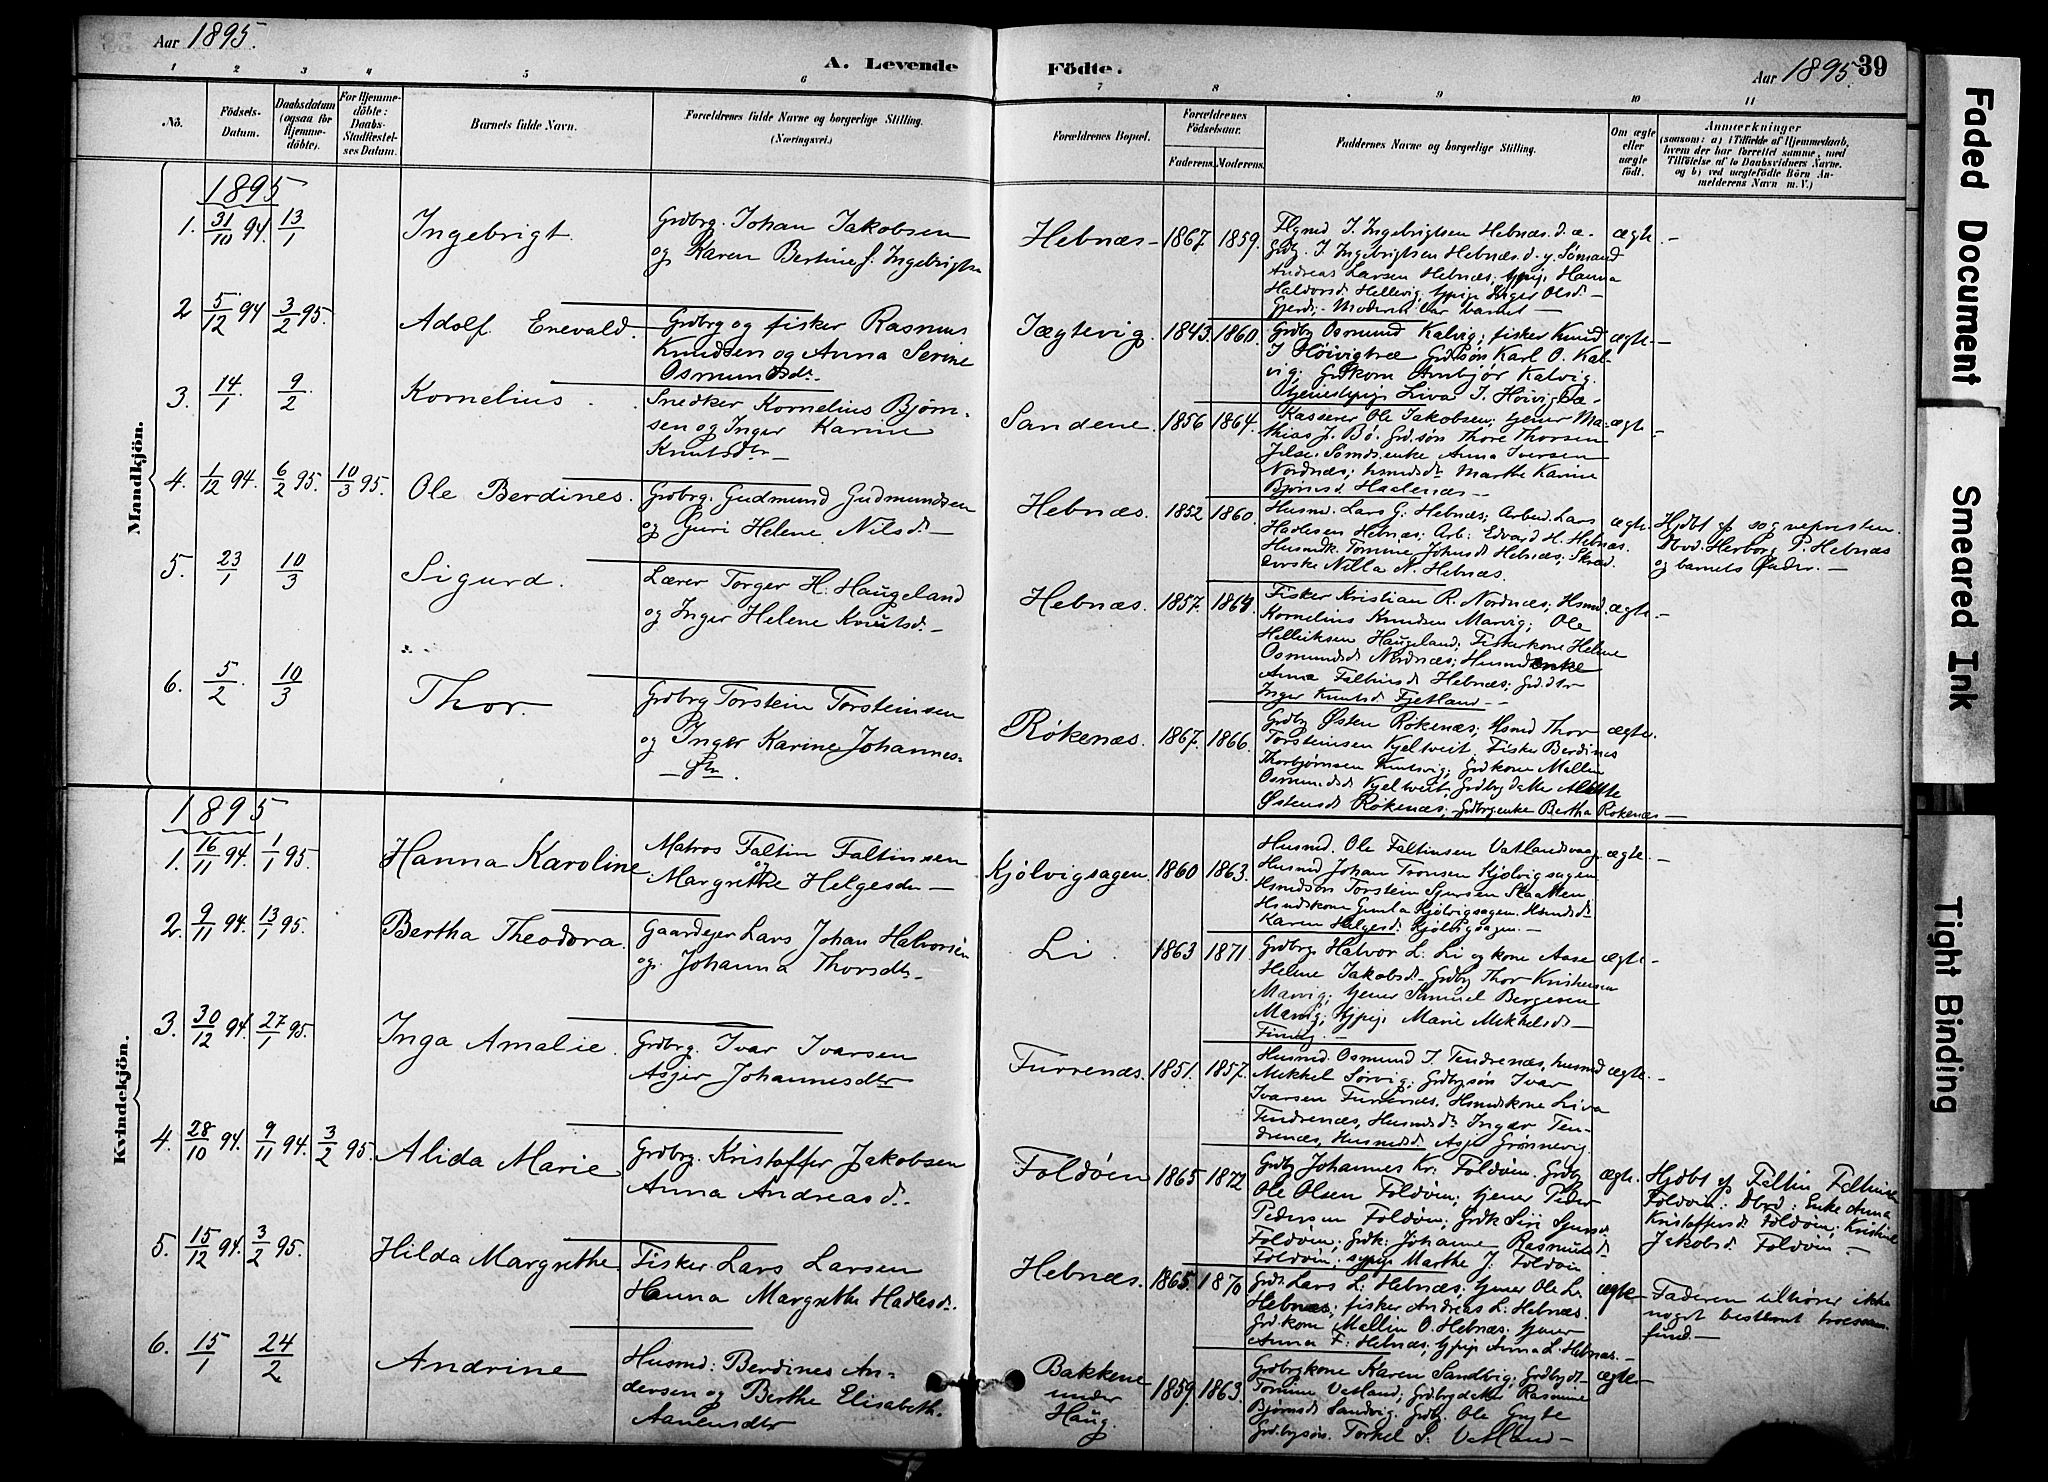 Aar 1895.
A. Levende
Födte.
Aar 1895.
39
1 2 3 4 5 6 7 8 9 10 11
No.
Födsels-
Datum.
Daabsdatum
(ogsaa for
Hjemme-
döbte).
For Hjemme-
döbte:
Daabs-
Stadfæstel-
ses Datum.
Barnets fulde Navn.
Forældrenes fulde Navne og borgerlige Stilling.
(Næringsvei.)
Forældrenes Bopæl.
Forældrenes
Födselsaar.
Faderens. Moderens.
Faddernes Navne og borgerlige Stilling.
Om ægte
eller
uægte
födt.
Anmærkninger
(saasom: a) i Tilfælde af Hjemmedaab,
hvem der har forrettet samme, med
Tilföielse af to Daabsvidners Navne.
og b) ved uægtefödte Börn An-
melderens Navn m. V.)
Mandkjön.
1895
1. 31/10 94. 13/1
Ingebrigt.
Grdbrg. Johan Jakobsen
og Karen Bertine f. Ingebrigtsn
Hebnæs - 1867. 1859.
Flgmd I. Ingebrigtsen Hebnæs. d. æ.
Grdbg. I. Ingebrigtsen Hebnæs. d. y. Sömand
Andreas Larsen Hebnæs; Hanna
Haldorsd. Hellevig, Inger Olsd. -
Gjerde. - Moderen bar barnet -
ægte. -
2 5/12 94 3/2 95.
Adolf Enevald.
Grdbrg og fisker Rasmus
Knudsen og Anna Serine
Osmundsdr.
Jægtevig. 1843. 1860.
Grdbg Osmund Kalvig; fisker Knud
I Höivigtræ Grd.sön Karl O. Kal-
vig; Grdkone Anbjør Kalvig.
Tjenestepige Liva I. Höivigtræ -
ægte. -
3. 14/1 9/2
Kornelius.
Snedker Kornelius Bjørn-
sen og Inger Karine
Knutsdtr -
Sandene. 1856 1864.
Kasserer Ole Jakobsen; tjener Ma-
thias J. Bö. Grd.sön Thore Thorsen
Jelse. enke Anna Iversen
Nordnæs; Marthe Karine
Bjørnsd. Haalenæs -
ægte. -
4. 1/12 94. 6/2 95. 10/3 95.
Ole Berdines.
Grdbrg. Gudmund Gudmundsen
og Guri Helene Nilsd. -
Hebnæs. 1852 1860.
Husmd. Lars G. Hebnæs; Arbeid. Lars
Hadlesen Hebnæs; Arb. Edvard H. Hebnæs.
Husmdk. Tomine Johnsd. Hebnæs; Skræd
derske Nilla N. Hebnæs.
ægte.
Hjdbt af sognepresten.
Dbvd. Herborg P. Hebnæs
og barnets fader. -
5. 23/1 10/3
Sigurd.
Lærer Torger H. Haugeland
og Inger Helene Knutsd. -
Hebnæs. 1857. 1864.
Fisker Kristian R. Nordnæs; Hsmd.
Kornelius Knudsen Marvig; Ole
Helliksen Haugeland; Fiskerkone Helene
Osmundsd. Nordnæs; Husmdenke
Anna Faltinsd. Hebnæs; Grd.dtr
Inger Knutsd. Fjetland - -
ægte. -
6. 5/2 10/3
Thor.
Grdbrg Torstein Torsteinsen
og Inger Karine Johannes-
- dtr.
Rökenæs. 1867. 1866.
Grdbg Østen Rökenæs; Hsmd Thor
Torsteinsen Kjeltveit, Fisker Berdines
Thorbjørnsen Knutsvig, Grdkone Mallin
Osmundsd. Kjeltveit, Grdbrg datter Alette
Østensd. Rökenæs; Grdbrgenke Bertha Rökenæs -
ægte.
Kvindekjön.
1895
1. 16/11 94. 1/1 95.
Hanna Karoline.
Matros Faltin Faltinsen
og
Margrethe Helgesdtr -
Kjölvigsagen. 1860 1863.
Husmd. Ole Faltinsen Vatlandsvaag
Husmd Johan Tronsen Kjölvigsagen
Hsmdsön Torstein Sjursen
Hsmdskone Gunla Kjölvigsagen. Hsmdsd.
Karen Helgesd. Kjölvigsagen. -
ægte. -
2. 9/11 94. 13/1 95.
Bertha Theodora.
Gaardejer Lars Johan Halvorsen
og. Johanna Thorsdtr.
Li. 1863 1871.
Grdbrg. Halvor L. Li og kone Aase
Helene Jakobsd. Grdbg Thor Kristensen
Marvig; tjener Samuel Bergesen
Marvig; tjpig. Marie Mikkelsd. -
Finnøy. -
ægte. -
3. 30/12 94. 27/1 95.
Inga Amalie.
Grdbrg. Ivar Ivarsen
Asjer Johannesdtr
Furrenæs. 1851. 1857.
Husmd. Osmund I. Tendrenæs, husmd
Mikkel Sørvig; Grdbgsön Ivar
Ivarsen Furrenæs. Hsmdskone Liva
Tendrenæs, Husmdsd. Inger Ten-
drenæs, Husmdsd. Asje Grønnevig
ægte. -
4. 28/10 94. 9/11 94. 3/2 95.
Alida Marie
Grdbrg. Kristoffer Jakobsen
Anna Andreasd.
Foldöen 1865 1872
Grdbg Johannes Kr. Foldöen. Grdbg
Ole Olsen Foldöen; tjener Peder
Pedersen Foldöen; Grdk Siri Sjursd.
Foldöen; Grdk: Johanne Rasmusd.
Foldöen; sypige Marthe J. Foldöen
ægte.
Hjdbt af Faltin Faltinsen
Foldöen: Dbvd: Enke Anna
Kristoffersd. Foldöen; Kristine
Jakobsd. Foldöen -
5. 15/12 94. 3/2 95.
Hilda Margrethe.
Fisker Lars Larsen
Hanna Margrethe Hadlesd.
Hebnæs. 1865. 1870
Grdr. Lars L. Hebnæs; tjener Ole L.
Hebnæs; fisker Andreas L. Hebnæs.
Grd.kone Mallin O. Hebnæs. tjener
Anna F. Hebnæs; tjpige Anna L. Hebnæs. -
ægte
Faderen tilhører ikke
noget bestemt troessam
fund. -
6. 15/1 24/2
Andrine
Husmd: Berdines An-
dersen og Berthe Elisabeth
Aanensdtr
Bakkene
under
Haug. 1859. 1863.
Grdbrgkone Karen Sandvig; Grdbrgdt.
Tomine Vatland; Grdbrg datter Rasmine
Bjørnsd. Sandvig. Grdbg. Ole Gryte
Grdbgsön. Torkel S. Vatland -
ægte -
Faded Document
Smeared Ink
Tight Binding